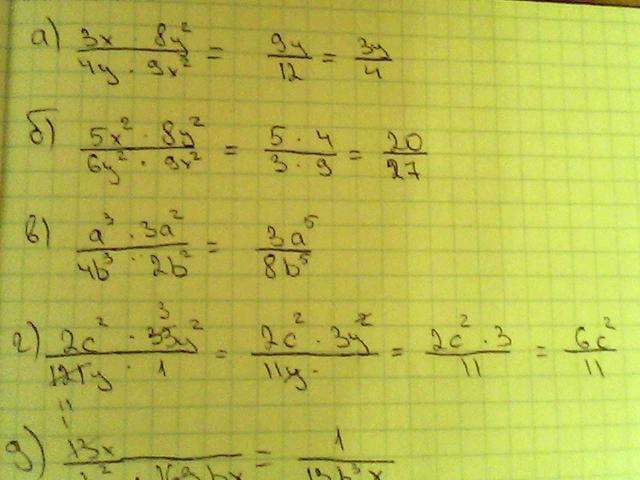 а) 3x 8y² / 4y · 9x² = 9y / 12 = 3y / 4
б) 5x² · 8y² / 6y² · 9x² = 5 · 4 / 3 · 9 = 20 / 27
в) a³ · 3a² / 4b³ · 2b² = 3a⁵ / 8b⁵
г) 2c² · 33y² / 121y · 1 = 2c² · 3y² / 11y · = 2c² · 3 / 11 = 6c² / 11
д) 13x / · 169bx = 1 / 13b³x